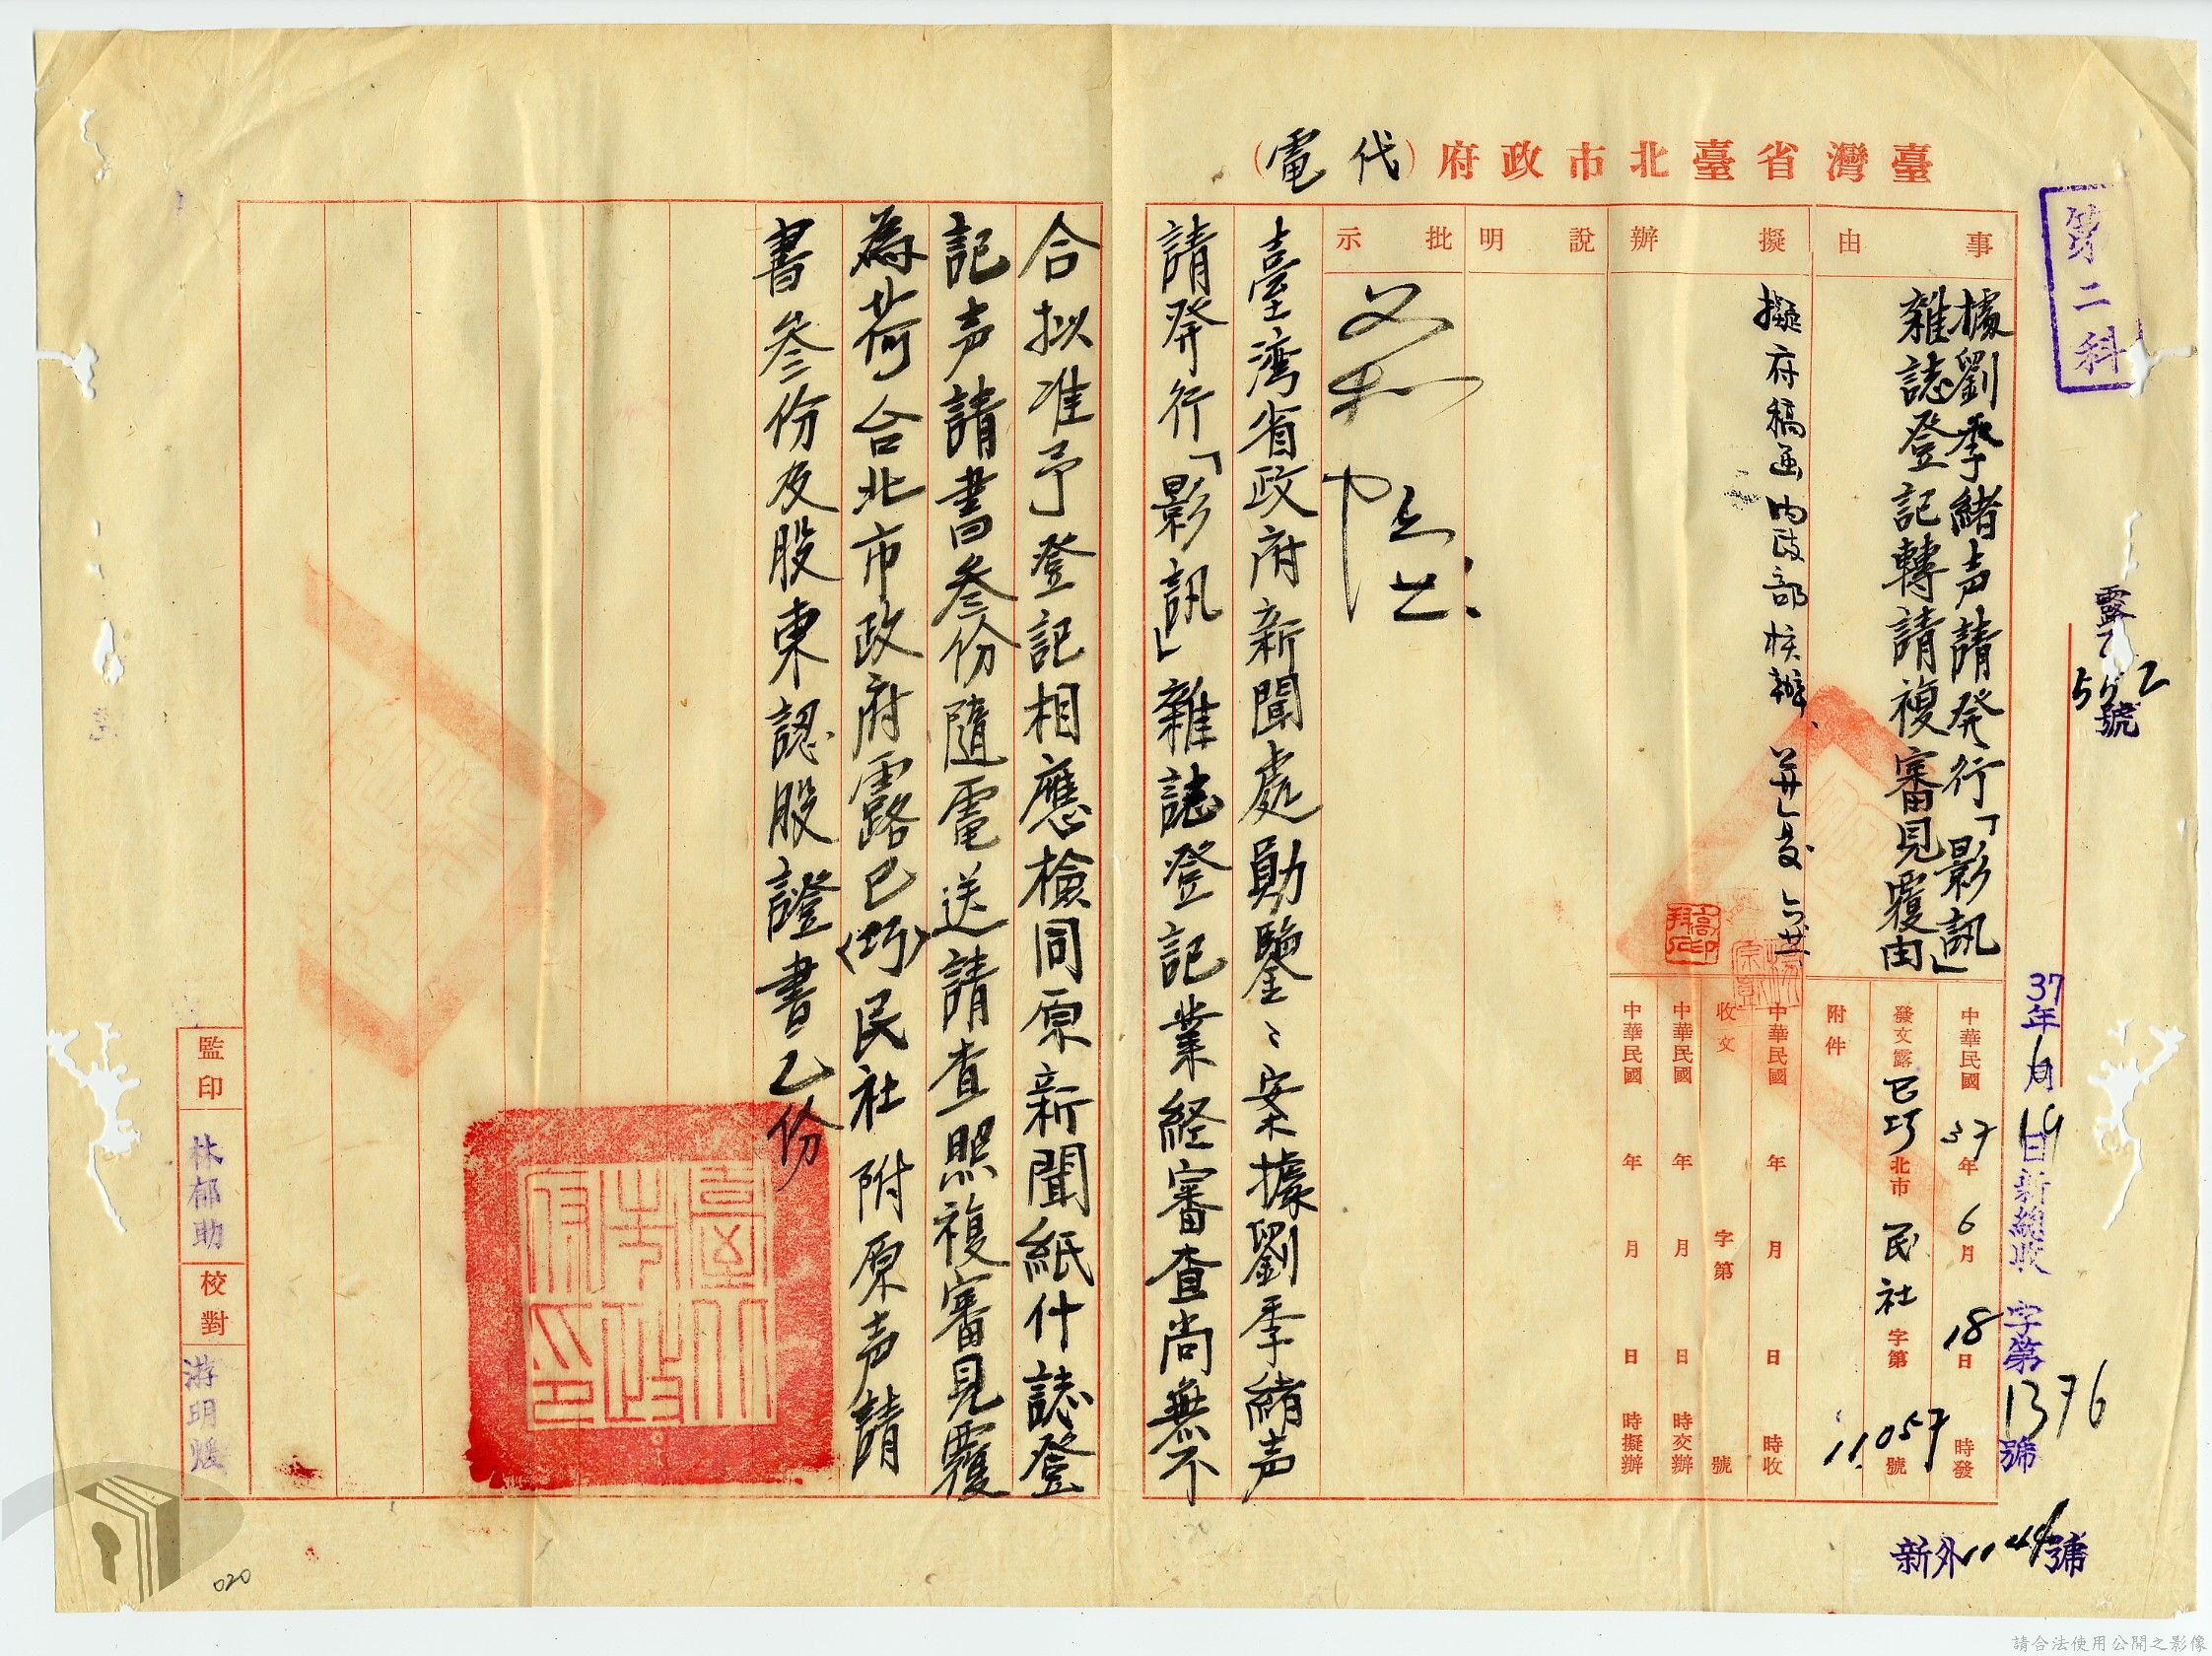 臺灣省臺北市政府(代電)
第二科
事由
據劉季緒声請発行「影訊」
雜誌登記轉請複審見覆由
擬辦
擬府稿函內政部核辦、并乚复
說明
批示
露
號
37年6月19日新總收 字第1376號
新外 號
中華民國37年6月18日 時發
發文露巳巧北市民社字第11057號
附件
中華民國 年 月 日 時收
收文 字第 號
中華民國 年 月 日 時交辦
中華民國 年 月 日 時擬辦
臺湾省政府新聞處勛鑒:案據劉季緒声
請発行「影訊」雜誌登記業経審查尚無不
合拟准予登記相應檢同原新聞紙什誌登
記声請書叁份隨電送請查照複審見覆
為荷台北市政府露巳(巧)民社 附原声請
書叁份及股東認股證書乙份
臺北市政府印
監印 林郁助
校對 游明煖
020
請合法使用公開之影像